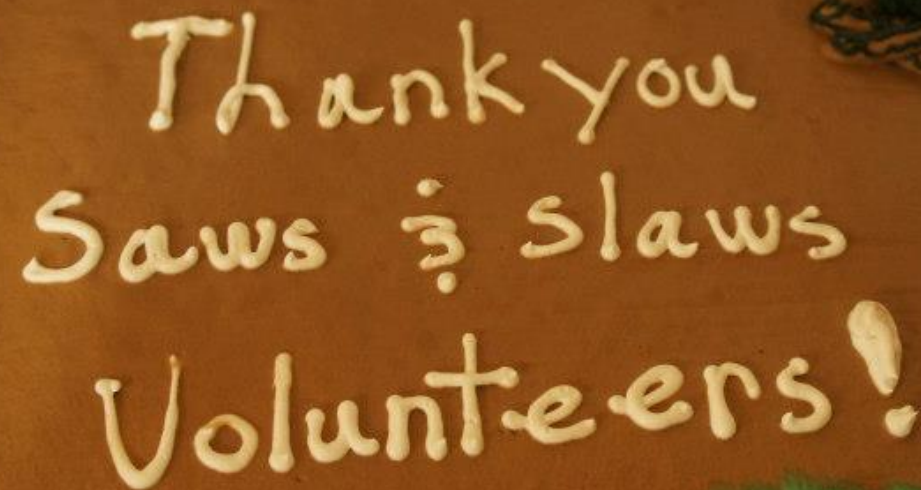 Thank you
Saws & slaws
Volunteers!